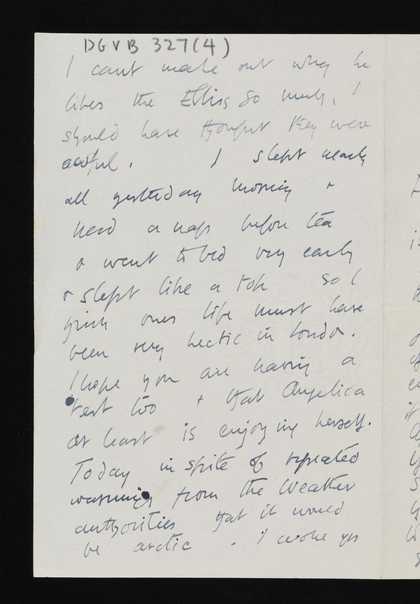 DGVB 327(4)
I cant make out why he
likes the Ellis so much, I
should have thought they were
awful. I slept nearly
all yesterday morning &
had a nap before tea
& went to bed very early
& slept like a top so I
think ones life must have
been very hectic in London.
I hope you are having a
rest too & that Angelica
at least is enjoying herself.
Today in spite of repeated
warnings from the weather
authorities that it would
be arctic. I woke